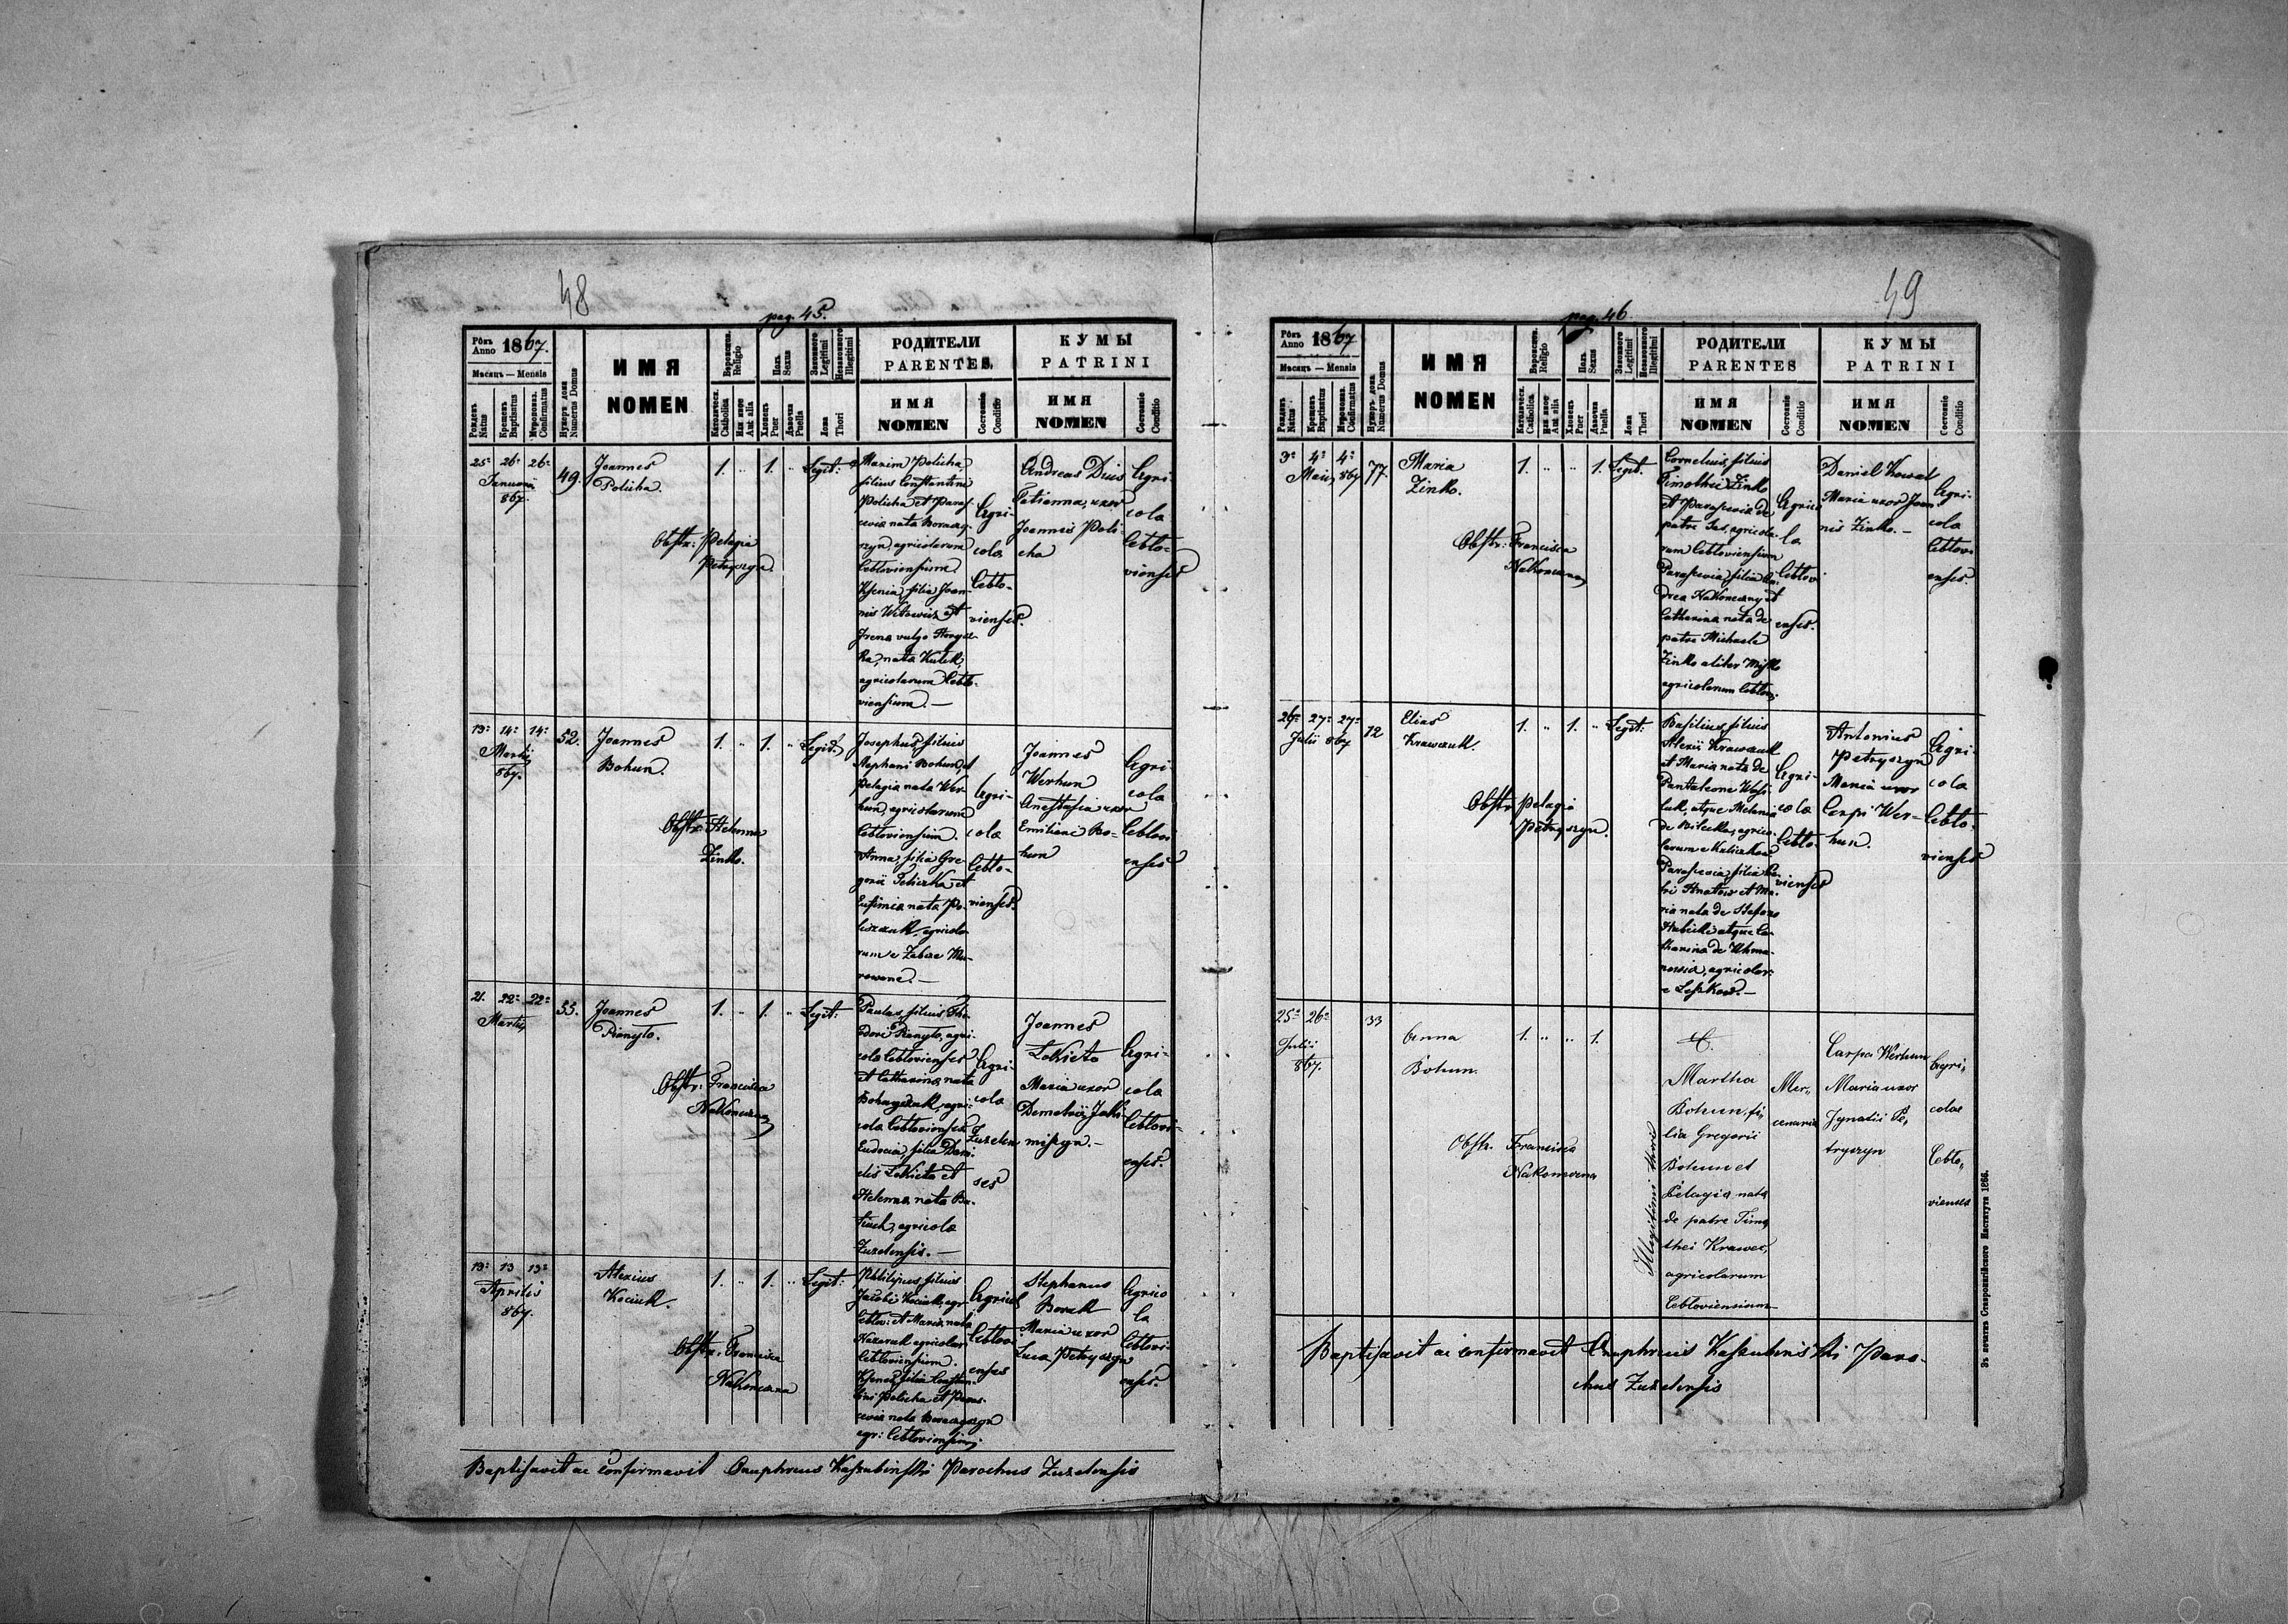 48
pag. 45.
Рôкъ
Anno 1867.
Мѣсяцъ — Mensis
Рожденъ
Natus
Крещенъ
Baptisatus
Мѵропома.
Confirmatus
Нумеръ дома
Numerus Domus
ИМЯ
NOMEN
Religio
Католическ.
Catholica
Aut alia
Полъ
Sexus
Хлопецъ
Puer
Дѣвочка
Puella
Законного
Legitimi
Незаконного
Illegitimi
Ложа
Thori
РОДИТЕЛИ
PARENTES.
ИМЯ
NOMEN
Состояніе
Conditio
КУМЫ
PATRINI
ИМЯ
NOMEN
Состояніе
Conditio
25a 26a 26a
Januarii
867.
49.
Joannes
Policha.
Obstr: Pelagia
Petryszyn.
1. „ 1. „ Legit:
Maxim Policha
filius Constantini
Policha et Paras-
cevia nata
agricolarum
Cebloviensium.
Ksenia, filia Joan-
nis Witowicz et
Irena vulgo
nata Kulik,
agricolarum Ceblo-
viensium. —
Agri-
cola
Ceblo-
vienses.
Andreas Duis
Tatianna, uxor
Joannis Poli-
cha
Agri-
cola
Ceblo-
vienses
13a 14a 14a
Martii
867.
52.
Joannes
Bohun.
Obstr: Helena
Zinko.
1. „ 1. „ Legit.
Josephus, filius
Stephani Bohun, et
Pelagia nata Wer-
hun, agricolarum
Cebloviensium.
Anna, filia Gre-
gorii
Eufimia nata Po-
agricola-
rum e Zabcze Mu-
rowane. —
Agri-
cola
Ceblo-
vienses.
Joannes
Werhun
Anastasia uxor
Emiliani Bo-
hun
Agri-
cola
Ceblovi-
enses
21. 22a 22a
Martii
55.
Joannes
Pianyło.
Obstr: Francisca
Nakoneczna
1. „ 1. „ Legit:
Paulus, filius Theo-
dori Pianyło, agri-
cola Cebloviensis
et Catharina nata
agri-
cola Cebloviensis
Eudocia, filia Dani-
elis Łokieta et
Helenna nata
agricola
Zuzelensis. —
Agri-
cola
Zuzelen
ses
Joannes
Łokieta
Maria uxor
Demetrii Jaki-
miszyn. —
Agri-
cola
Ceblovi-
enses.
13a 13 13a
Aprilis
867.
Alexius
Kociuk.
Obstr: Francisca
Nakoneczna
1. „ 1. „ Legit:
Philipus, filius
Jacobi Kociuk, agr.
Ceblov: et Maria nata
Nazaruk agricolar
Cebloviensium.
Ksenia, filia Constan-
tini Policha et Paras-
cevia nata
agr: Cebloviensium.
Agricol
Ceblovi
enses
Stephanus
Boruk
Maria uxor
Luca Petryszyn
Agrico
la
Ceblovi-
enses.
Baptisavit ac confirmavit Onuphrius Kaszubinski Parochus Zuzelensis
49
pag. 46
Рôкъ
Anno 1867
Мѣсяцъ — Mensis
Рожденъ
Natus
Крещенъ
Baptisatus
Мѵропома.
Confirmatus
Нумеръ дома
Numerus Domus
ИМЯ
NOMEN
Religio
Католическ.
Catholica
Aut alia
Полъ
Sexus
Хлопецъ
Puer
Дѣвочка
Puella
Законного
Legitimi
Незаконного
Illegitimi
Ложа
Thori
РОДИТЕЛИ
PARENTES
ИМЯ
NOMEN
Состояніе
Conditio
КУМЫ
PATRINI
ИМЯ
NOMEN
Состояніе
Conditio
3a 4a 4a
Maii 867
77.
Maria
Zinko.
Obstr: Francisca
Nakoneczna
1. „ „ 1. Legit.
Cornelius, filius
Timothei Zinko
et Parascevia de
patre Jas, agricola-
rum Cebloviensium
Parascevia, filia An-
drea Nakoneczny et
Catharina nata de
patre Michaele
Zinko aliter Misko
agricolarum Ceblov.
Agrico
la
Ceblovi
enses.
Daniel Kowal
Maria uxor Joan-
nis Zinko. —
Agri-
cola
Ceblovi
enses.
26a 27a 27a
Julii 867
12
Elias
Krawczuk.
Obstr: Pelagia
Petryszyn.
1. „ 1. „ Legit:
Basilius, filius
Alexii Krawczuk
et Maria nata de
Pantaleone Wasi-
luk, atque Melania
de Bilecka, agrico-
larum e Kuliczkow
Parascevia, filia
Hnatow et Ma-
ria nata de Stefano
Hrabicki atque Ca-
tharina de
agricolar:
e Leszkow. —
Agri-
cola
Ceblo-
vienses
Antonius
Petryszyn
Maria uxor
Carpi Wer-
hun.
Agri-
cola
Ceblo-
vienses
25a 26a
Julii
867.
33
Anna
Bohun.
Obstr. Francisca
Nakoneczna
1. „ „ 1.
Illegitimi thori
Martha
Bohun, fi-
lia Gregorii
Bohun et
Pelagia nata
de patre Timo
thei Krawec,
agricolarum
Cebloviensium
Mer-
cenaria
Carpa Werhun
Maria uxor
Ignatii Pe-
tryszyn
Agri-
colae
Ceblo-
vienses
Baptisavit ac confirmavit Onuphrius Kaszubinski Paro-
chus Zuzelensis
Зъ печатнѣ Ставропигійского Института 1866.